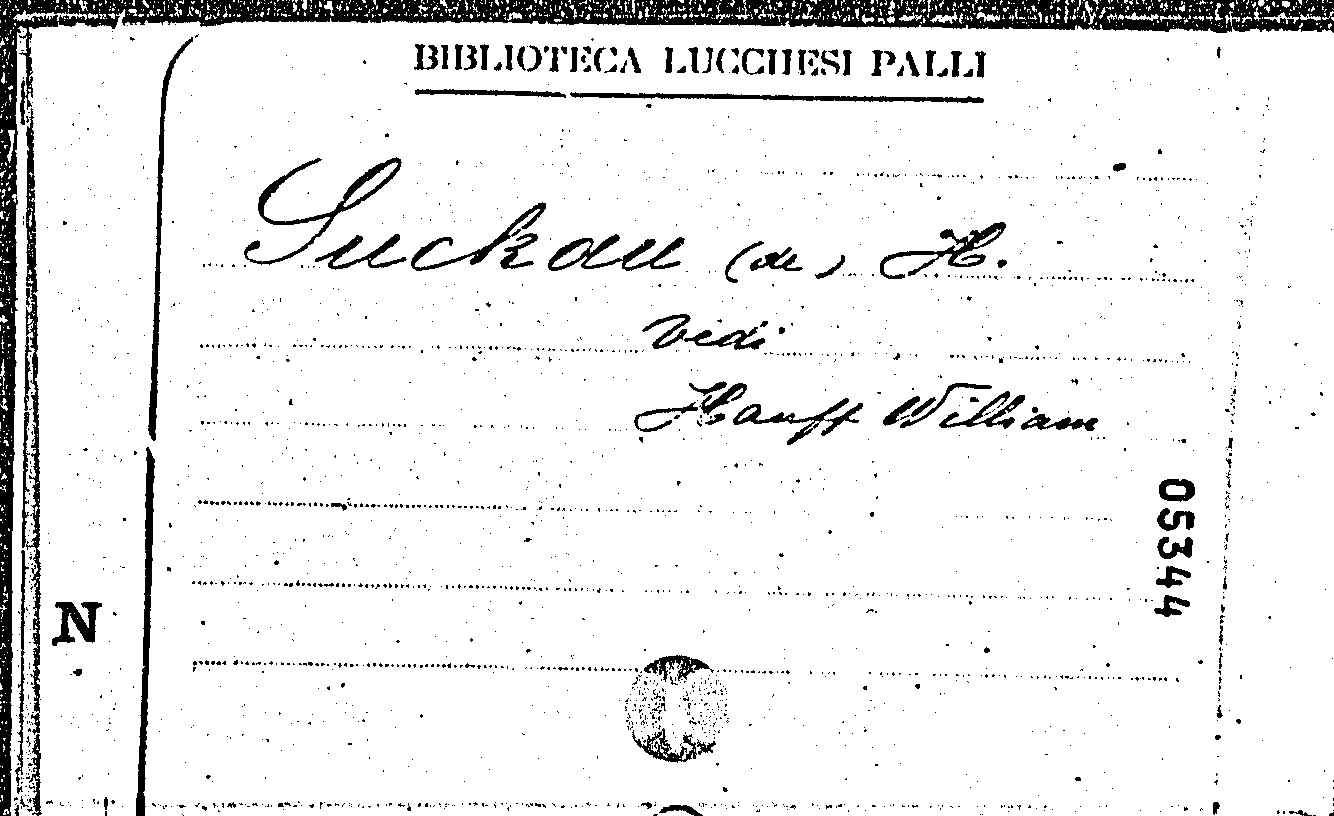 BIBLIOTECA LUCCHESI PALLI
Suckau (de) H.
vedi
Hauff William
05344
N